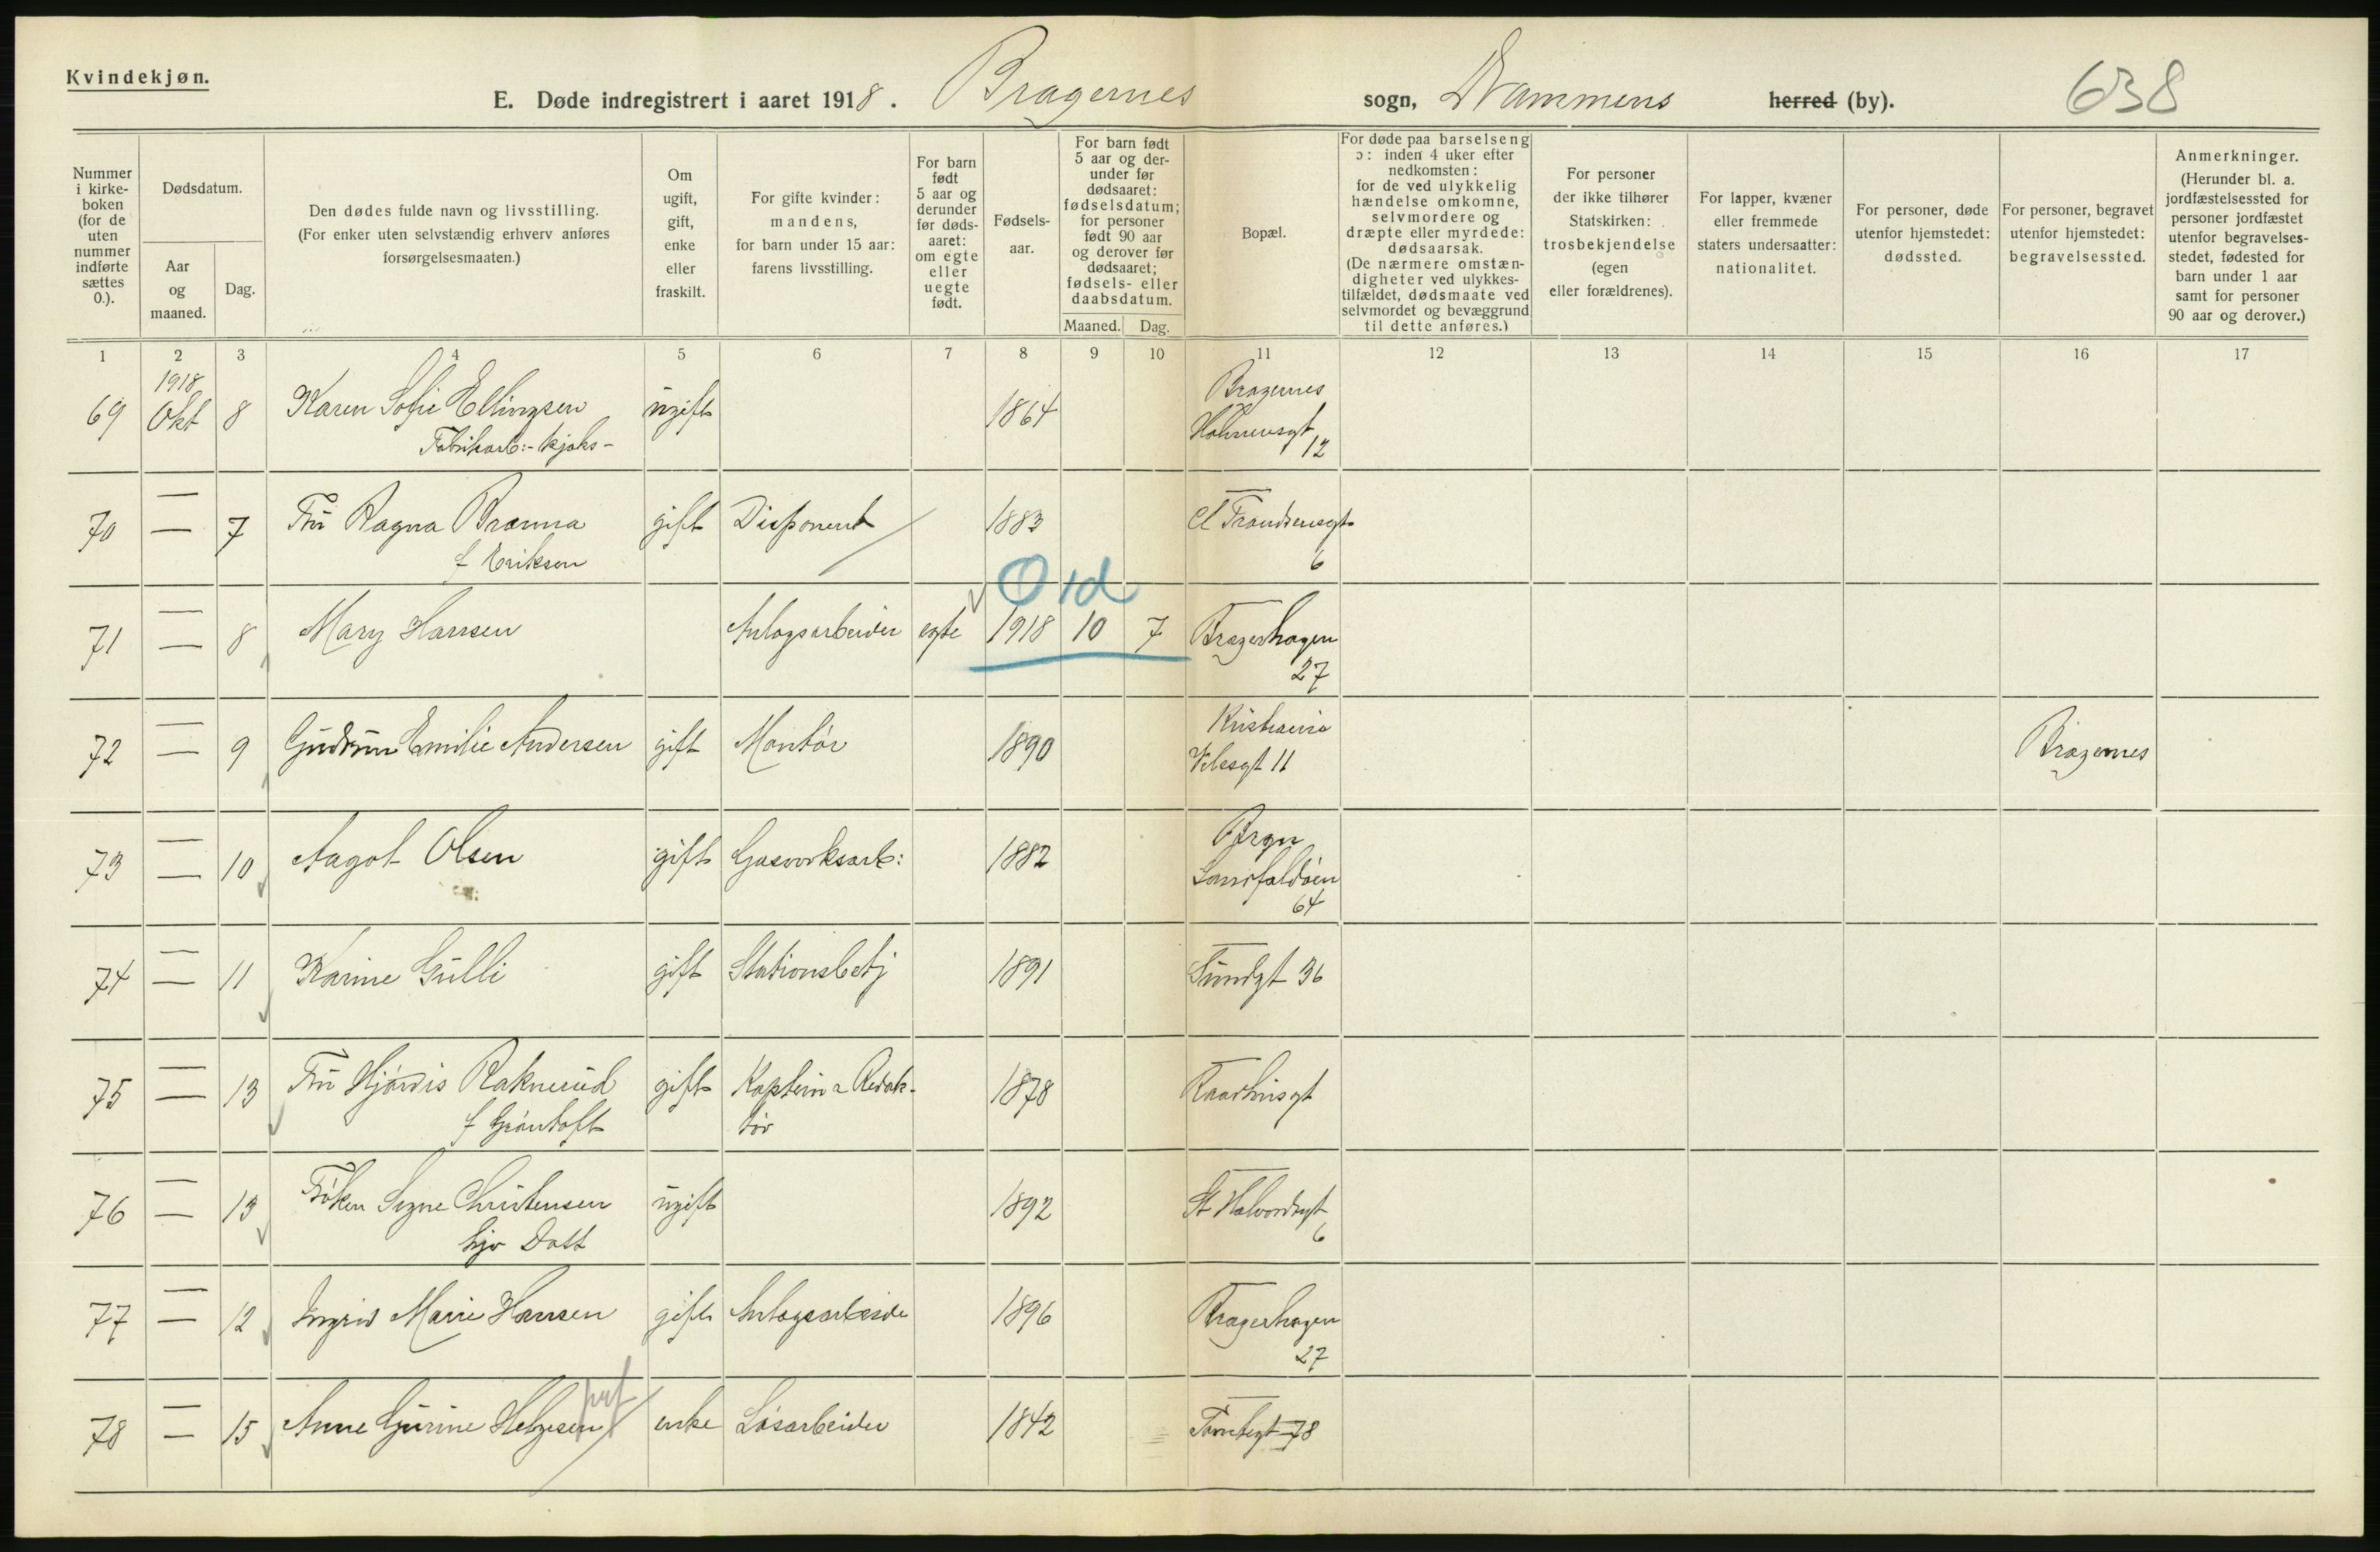 Kvindekjøn.
E. Døde indregistrert i aaret 1918. Bragernes sogn, Drammens herred (by). 638
Nummer i kirke-boken (for de uten nummer indførte sættes 0.).
Dødsdatum.
Aar og maaned.
Dag.
Den dødes fulde navn og livsstilling.
(For enker uten selvstændig erhverv anføres forsørgelsesmaaten.)
Om ugift, gift, enke eller fraskilt.
For gifte kvinder: mandens, for barn under 15 aar: farens livsstilling.
For barn født 5 aar og derunder før døds-aaret: om egte eller uegte født.
Fødsels-aar.
For barn født 5 aar og der-under før dødsaaret: fødselsdatum; for personer født 90 aar og derover før dødsaaret; fødsels- eller daabsdatum.
Maaned. Dag.
Bopæl.
For døde paa barselseng ɔ: inden 4 uker efter nedkomsten: for de ved ulykkelig hændelse omkomne, selvmordere og dræpte eller myrdede: dødsaarsak.
(De nærmere omstæn-digheter ved ulykkes-tilfældet, dødsmaate ved selvmordet og bevæggrund til dette anføres.)
For personer der ikke tilhører Statskirken: trosbekjendelse (egen eller forældrenes).
For lapper, kvæner eller fremmede staters undersaatter: nationalitet.
For personer, døde utenfor hjemstedet: dødssted.
For personer, begravet utenfor hjemstedet: begravelsessted.
Anmerkninger.
(Herunder bl. a. jordfæstelsessted for personer jordfæstet utenfor begravelses-stedet, fødested for barn under 1 aar samt for personer 90 aar og derover.)
1 2 3 4 5 6 7 8 9 10 11 12 13 14 15 16 17
1918 Bragernes
69 Okt 8 Karen Sofie Ellingsen ugift 1864
Fabrikarb: 12
70 — 7 Fru Ragna gift Disponent 1883
f Eriksen 6
Old
71 — 8 Mary Hansen Anlægsarbeider egte 1918 10 7 Bragerhagen
27
Kristiania
72 — 9 Gudrun Emilie Andersen gift Montør 1890 11 Bragernes
73 — 10 Aagot Olsen gift Gasverksarb: 1882
64
74 — 11 Karine Gulli gift Stationsbetj 1891 Sundgt 36
75 — 13 Fru Hjørdis Raknerud gift Kaptein & Redak- 1878 Raadhusgt
f Grøntoft tør
76 — 13 Frøken Signe Christensen ugift 1892 St Halvordsgt
hjv Datt 6
77 — 12 Ingrid Marie Hansen gift Anlægsarbeide 1896 Bragerhagen
27
78 — 15 Anne Gurine Helgesen enke Løsarbeider 1842 Tomtegt 78